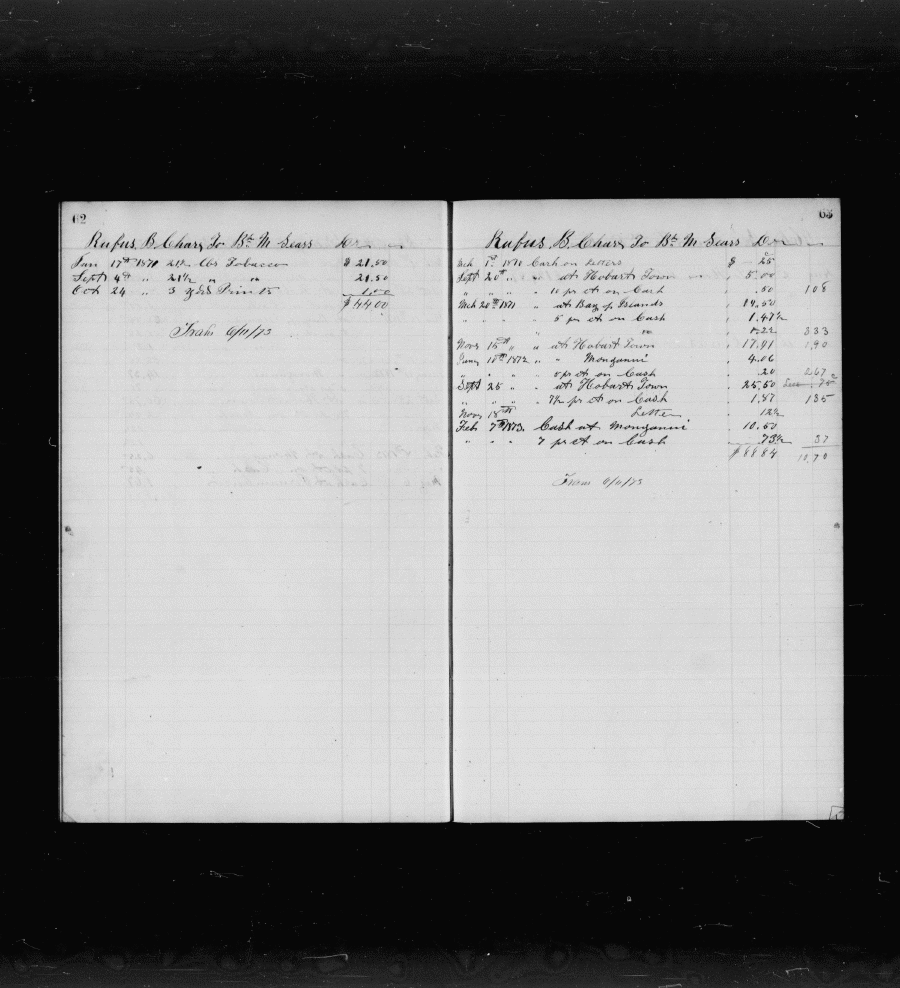 62
Rufus. B. Chase To Bk M Sears Dr
Jan 17th 1871 21½ lbs Tobacco $ 21.50
Sept 4th " 21½ " " 21.50
Oct 24 " 3 yds Print 1.00
$ 44.00
Trans 6/11/73
63
Rufus. B. Chase To Bk M Sears Dr
Mch 1st 1871 Cash on Letters $ .25
Sept 20th " " at Hobart Town " 5.00
" " " " 10 pr ct on Cash " .50 108
Mch 20th 1871 " at Bay of Islands " 14.50
" " " " 5 pr ct on Cash " 1.47½
" 333
Novr 15th " " at Hobart Town " 17.91 190
Jany 18th 1872 " " Monganni " 4.06
" " " " 5 pr ct on Cash " .20 267
Sept 25 " " at Hobart Town " 25.50
" " " " 7½ pr ct on Cash " 1.87 135
Novr 18th Letter " 12½
Feb 7th 1873. Cash at Monganni " 10.50
" " " 7 pr ct on Cash .73½ 37
$ 88 84 10.70
Trans 6/11/73